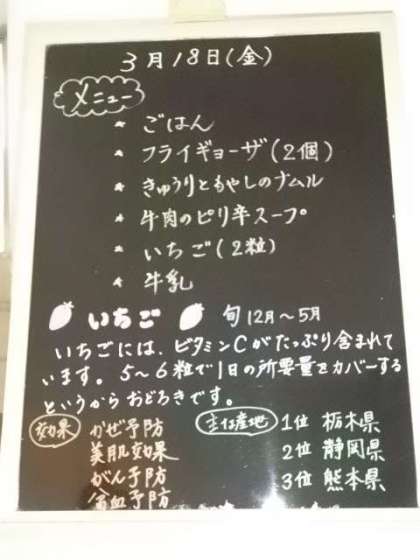 3月18日(金)
メニュー
* ごはん
* フライギョーザ(2個)
* きゅうりともやしのナムル
* 牛肉のピリ辛スープ
* いちご(2粒)
* 牛乳
いちご 旬12月〜5月
いちごには、ビタミンCがたっぷり含まれて
います。5〜6粒で1日の所要量をカバーする
というからおどろきです。
効果 かぜ予防
美肌効果
がん予防
貧血予防
主な産地 1位 栃木県
2位 静岡県
3位 熊本県